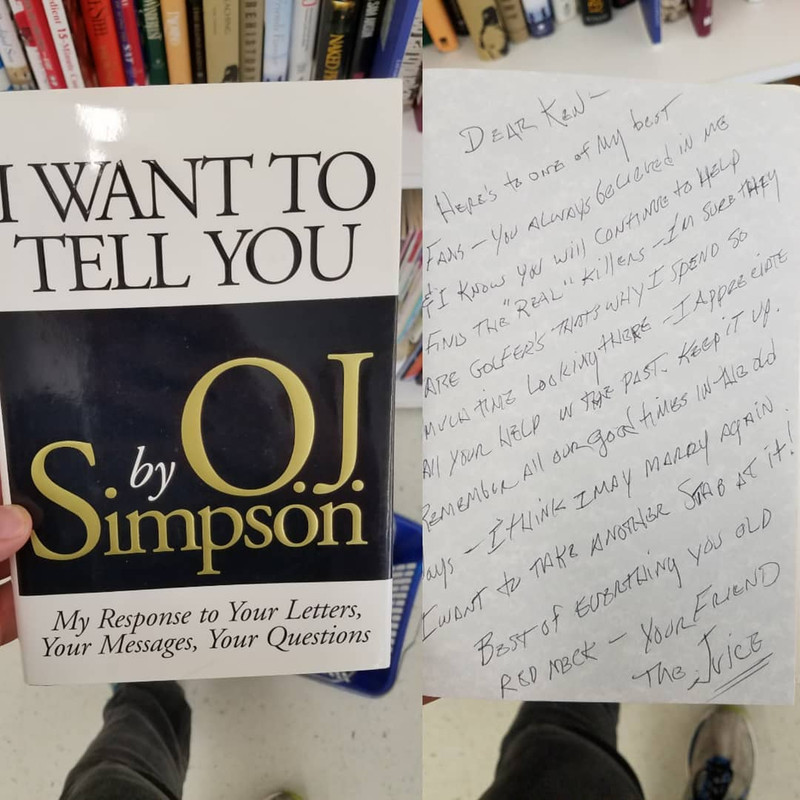 I WANT TO
TELL YOU
by O.J.
Simpson
My Response to Your Letters,
Your Messages, Your Questions
DEAR KEN—
HERE'S to ONE of MY best
FANS — YOU ALWAYS BELIEVED IN ME
& I KNOW YOU WILL CONTINUE TO HELP
FIND THE "REAL" KILLERS — I'M SURE THEY
ARE GOLFER'S THAT'S WHY I SPEND SO
MUCH TIME LOOKING THERE — I APPRECIATE
All YOUR HELP IN THE PAST. KEEP IT UP.
REMEMBER All OUR good TIMES IN THE old
DAYS — I THINK I MAY MARRY AGAIN.
I WANT TO TAKE ANOTHER STAB AT it!
BEST of EVERYTHING YOU OLD
RED NECK — YOUR FRIEND
THE JUICE